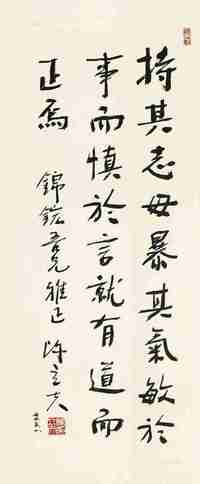 持其志毋暴其氣敏於
事而慎於言就有道而
正焉
錦鋐吾兄雅正 許立夫